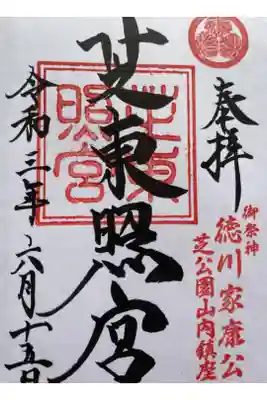 奉拝
御祭神
徳川家康公
芝公園山内鎮座
芝東照宮
芝東照宮
令和三年六月十五日